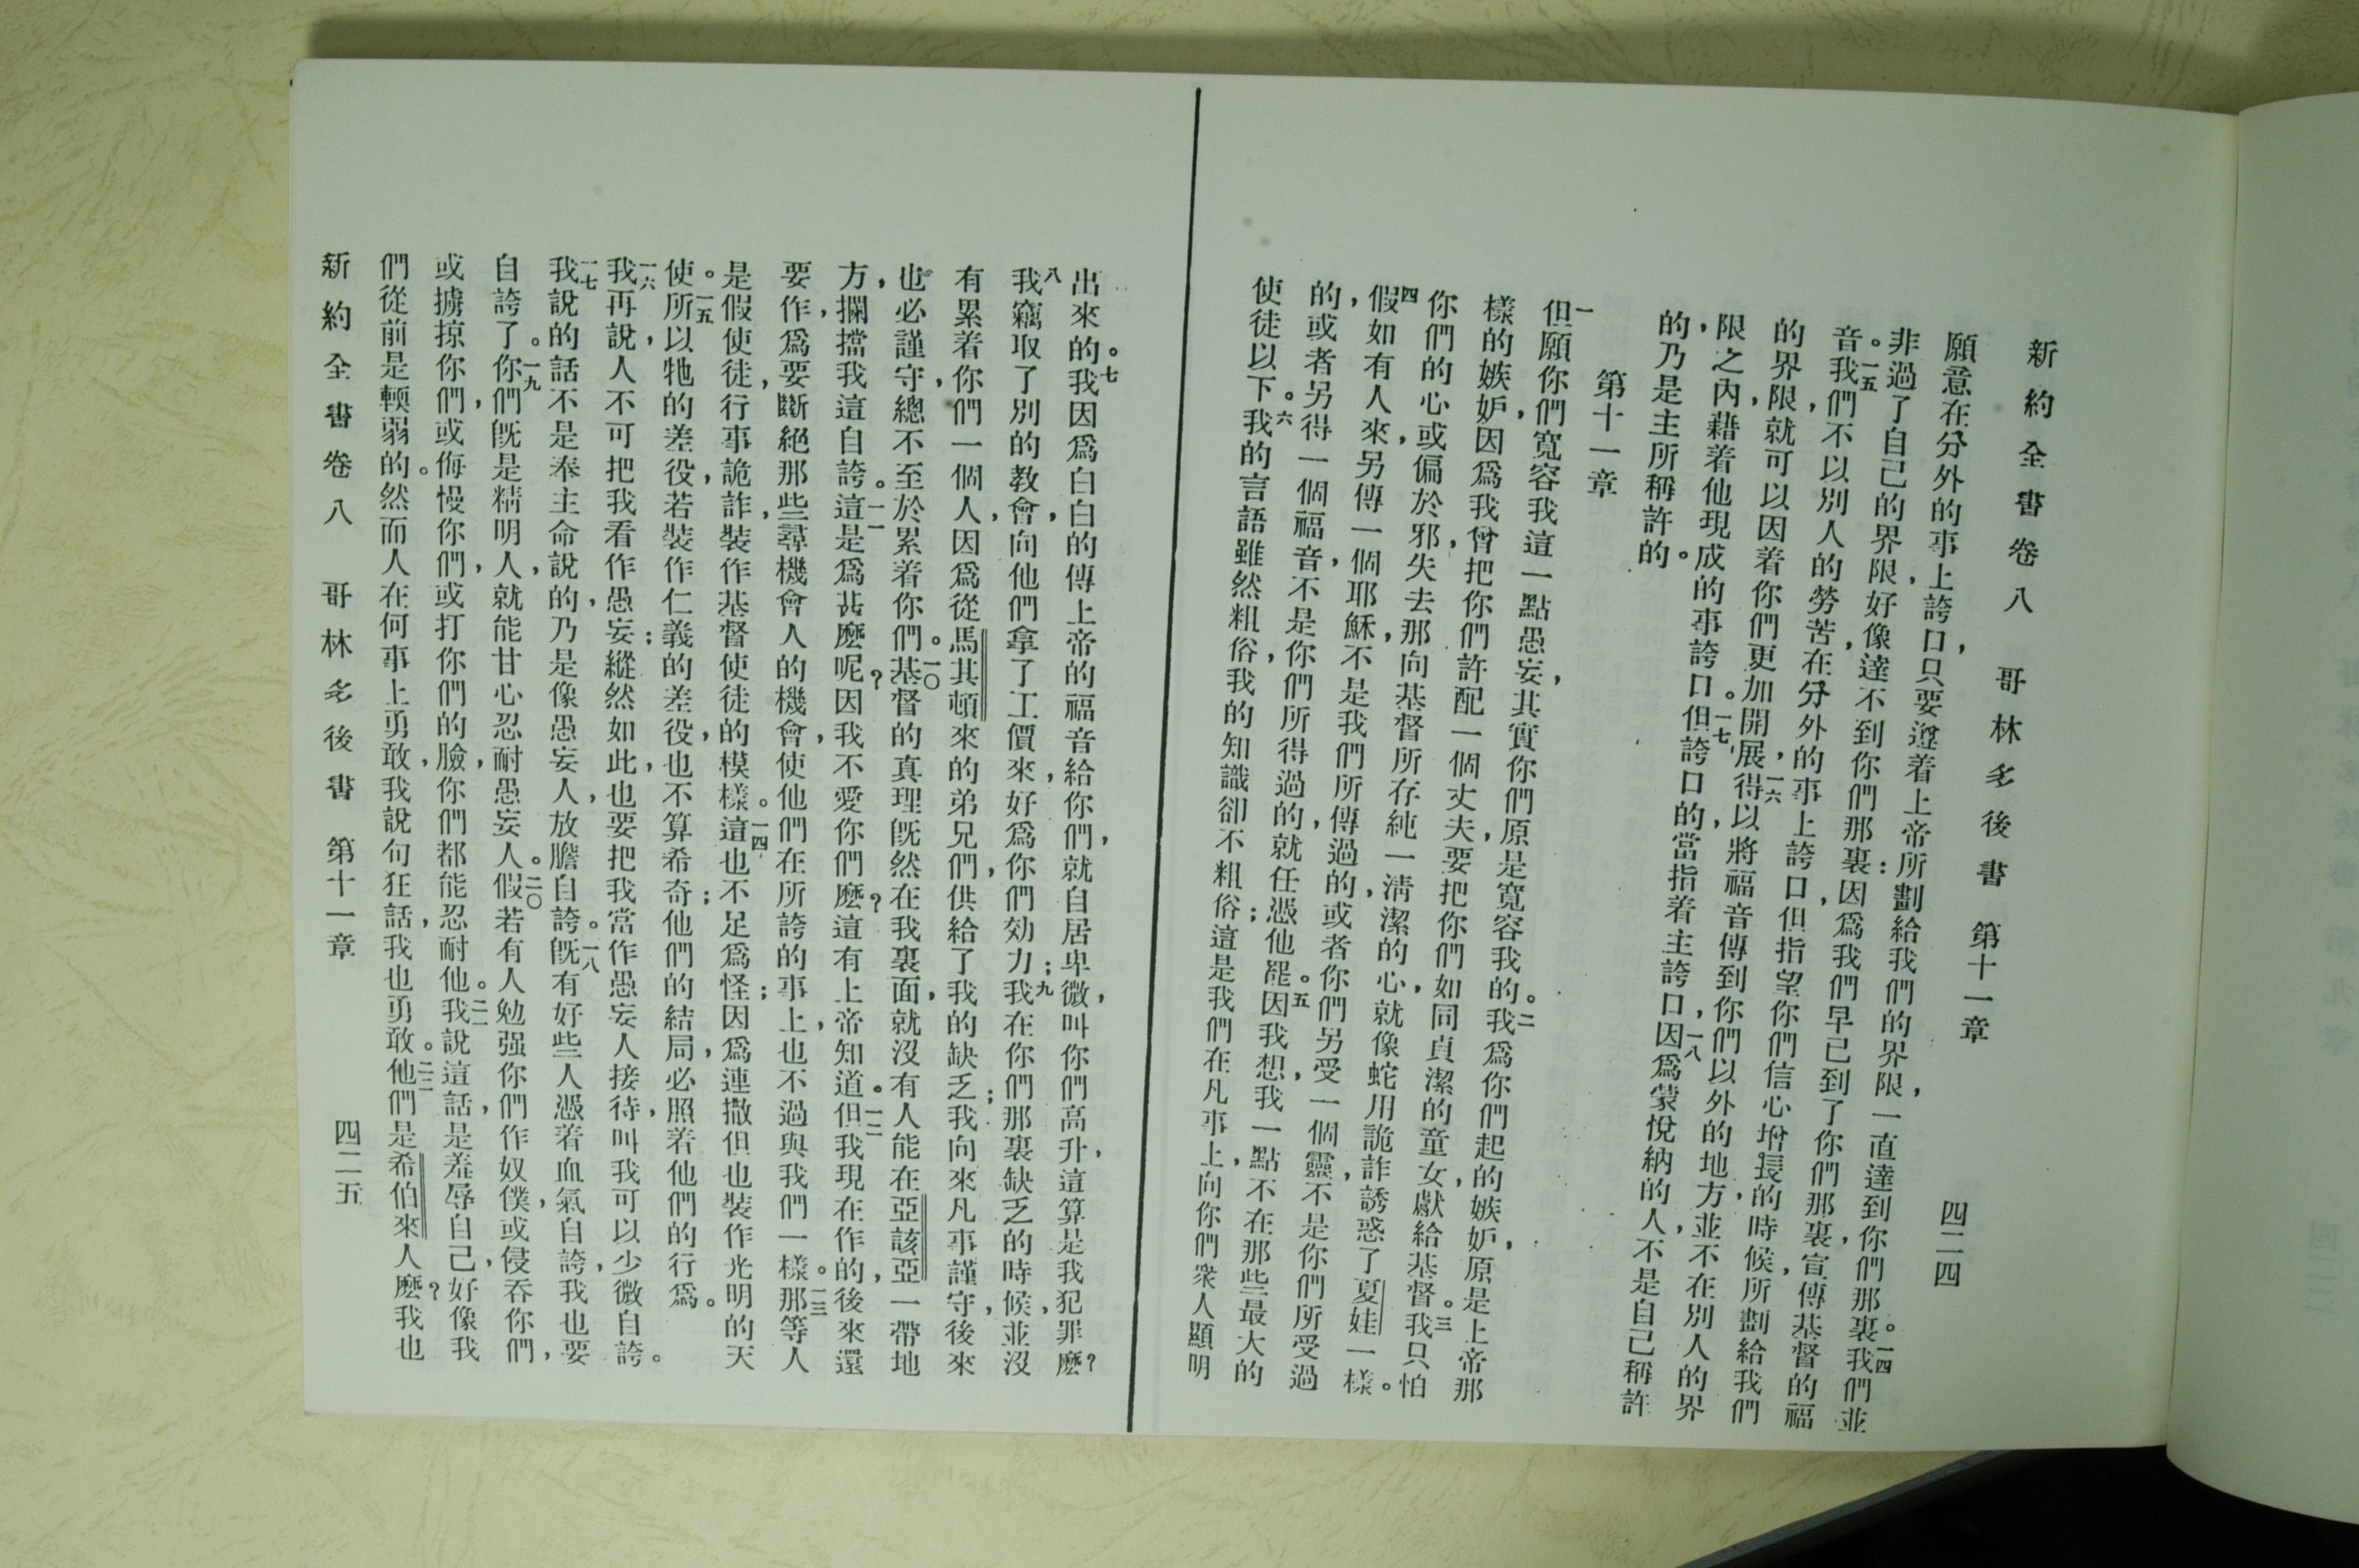 新約全書卷八 哥林多後書 第十一章 四二四
願意在分外的事上誇口，只要遵着上帝所劃給我們的界限，一直達到你們那裏。一四我們並
非過了自己的界限，好像達不到你們那裏：因爲我們早已到了你們那裏，宣傳基督的福
音。一五我們不以別人的勞苦，在分外的事上誇口，但指望你們信心增長的時候，所劃給我們
的界限，就可以因着你們更加開展，一六得以將福音傳到你們以外的地方，並不在別人的界
限之內，藉着他現成的事誇口。一七但誇口的，當指着主誇口，一八因爲蒙悅納的人，不是自己稱許
的，乃是主所稱許的。
第十一章
一但願你們寬容我這一點愚妄，其實你們原是寬容我的。二我爲你們起的嫉妒，原是上帝那
樣的嫉妒，因爲我曾把你們許配一個丈夫，要把你們如同貞潔的童女，獻給基督。三我只怕
你們的心或偏於邪，失去那向基督所存純一淸潔的心，就像蛇用詭詐誘惑了夏娃一樣。
四假如有人來，另傳一個耶穌，不是我們所傳過的，或者你們另受一個靈，不是你們所受過
的，或者另得一個福音，不是你們所得過的，就任憑他罷。五因我想，我一點不在那些最大的
使徒以下。六我的言語雖然粗俗，我的知識卻不粗俗；這是我們在凡事上，向你們衆人顯明
出來的。七我因爲白白的傳上帝的福音給你們，就自居卑微，叫你們高升，這算是我犯罪麽？
八我竊取了別的教會，向他們拿了工價來，好爲你們効力；九我在你們那裏缺乏的時候，並沒
有累着你們一個人，因爲從馬其頓來的弟兄們，供給了我的缺乏；我向來凡事謹守，後來
也必謹守，總不至於累着你們。一〇基督的真理旣然在我裏面，就沒有人能在亞該亞一帶地
方，攔擋我這自誇。一一這是爲甚麽呢？因我不愛你們麽？這有上帝知道。一二但我現在作的，後來還
要作，爲要斷絕那些尋機會人的機會，使他們在所誇的事上，也不過與我們一樣。一三那等人
是假使徒，行事詭詐，裝作基督使徒的模樣。一四這也不足爲怪；因爲連撒但也裝作光明的天
使。一五所以牠的差役，若裝作仁義的差役，也不算希奇；他們的結局，必照着他們的行爲。
一六我再說，人不可把我看作愚妄；縱然如此，也要把我當作愚妄人接待，叫我可以少微自誇。
一七我說的話，不是奉主命說的，乃是像愚妄人，放膽自誇。一八旣有好些人憑着血氣自誇，我也要
自誇了。一九你們旣是精明人，就能甘心忍耐愚妄人。二〇假若有人勉强你們作奴僕，或侵吞你們，
或擄掠你們，或侮慢你們，或打你們的臉，你們都能忍耐他。二一我說這話，是羞辱自己，好像我
們從前是輭弱的。然而人在何事上勇敢，我說句狂話，我也勇敢。二二他們是希伯來人麽？我也
新約全書卷八 哥林多後書 第十一章 四二五